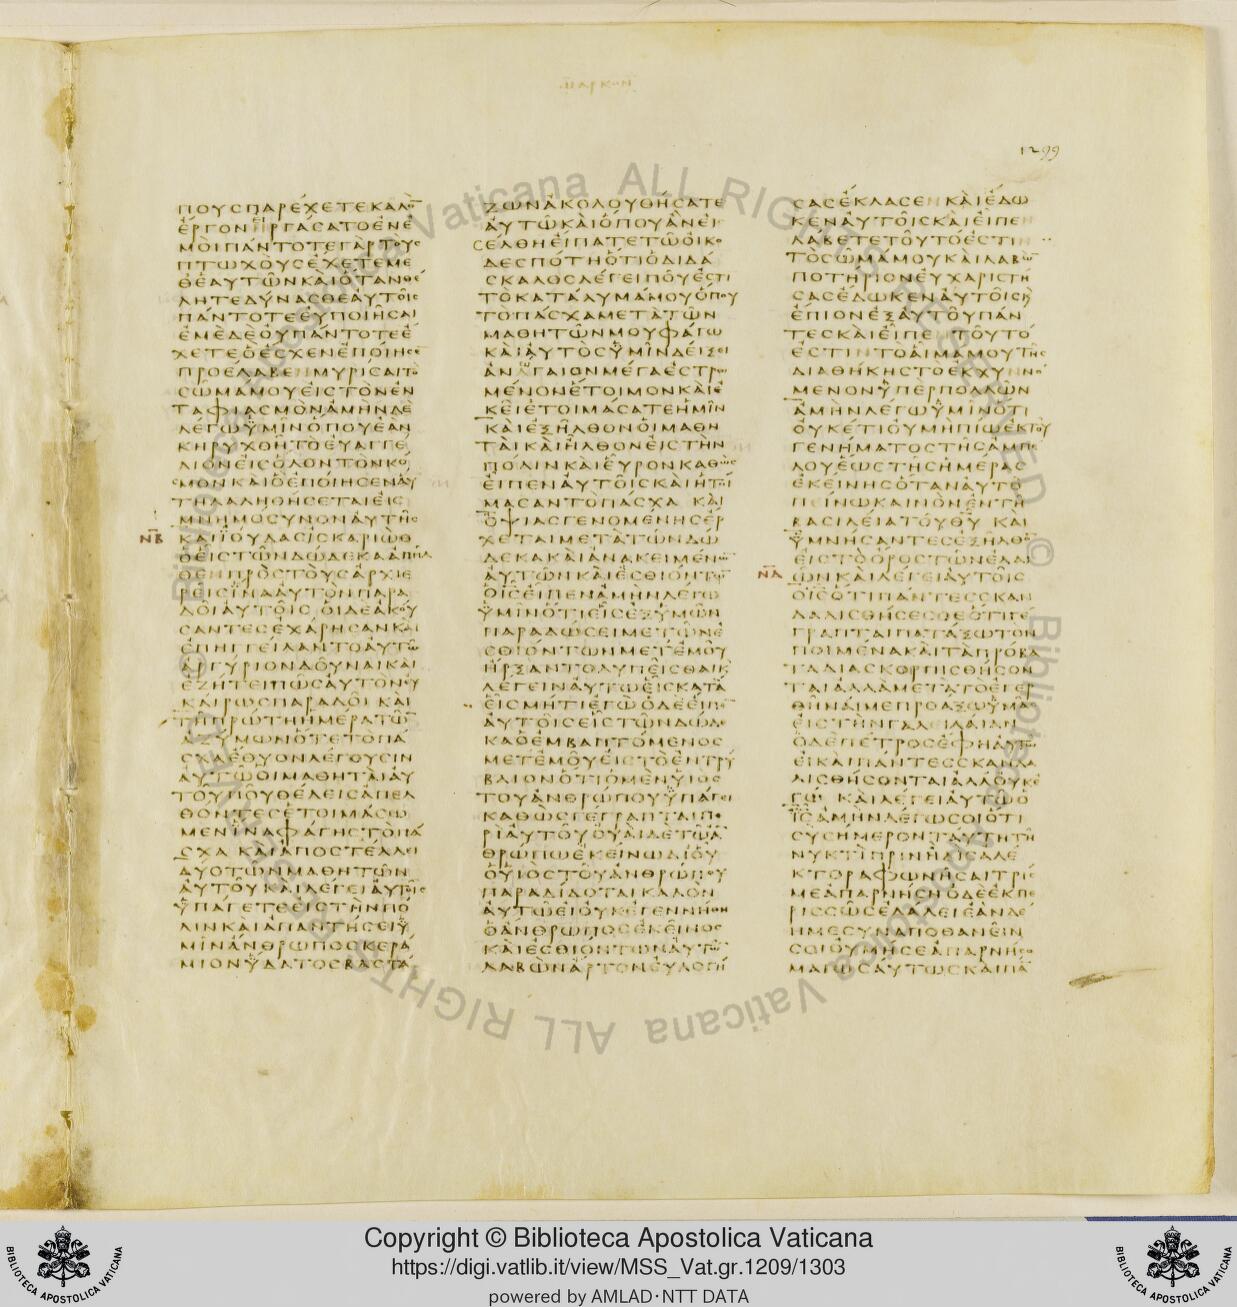 ΜΑΡΚΟΝ
1299
ΠΟΥΣΠΑΡΕΧΕΤΕΚΑΛΟ
ΕΡΓΟΝΗΡΓΑΣΑΤΟΕΝΕ
ΜΟΙΠΑΝΤΟΤΕΓΑΡΤΟΥΣ
ΠΤΩΧΟΥΣΕΧΕΤΕΜΕ
ΘΕΑΥΤΩΝΚΑΙΟΤΑΝΘΕ
ΛΗΤΕΔΥΝΑΣΘΕΑΥΤΟΙΣ
ΠΑΝΤΟΤΕΕΥΠΟΙΗΣΑΙ
ΕΜΕΔΕΟΥΠΑΝΤΟΤΕΕ
ΧΕΤΕΟΕΣΧΕΝΕΠΟΙΗΣΕ
ΠΡΟΕΛΑΒΕΝΜΥΡΙΣΑΙΤΟ
ΣΩΜΑΜΟΥΕΙΣΤΟΝΕΝ
ΤΑΦΙΑΣΜΟΝΑΜΗΝΔΕ
ΛΕΓΩΥΜΙΝΟΠΟΥΕΑΝ
ΚΗΡΥΧΘΗΤΟΕΥΑΓΓΕ
ΛΙΟΝΕΙΣΟΛΟΝΤΟΝΚΟ
ΣΜΟΝΚΑΙΟΕΠΟΙΗΣΕΝΑΥ
ΤΗΛΑΛΗΘΗΣΕΤΑΙΕΙΣ
ΜΝΗΜΟΣΥΝΟΝΑΥΤΗΣ
ΝΒ ΚΑΙΙΟΥΔΑΣΙΣΚΑΡΙΩΘ
ΟΕΙΣΤΩΝΔΩΔΕΚΑΑΠΗΛ
ΘΕΝΠΡΟΣΤΟΥΣΑΡΧΙΕ
ΡΕΙΣΙΝΑΑΥΤΟΝΠΑΡΑ
ΔΟΙΑΥΤΟΙΣ ΟΙΔΕΑΚΟΥ
ΣΑΝΤΕΣΕΧΑΡΗΣΑΝΚΑΙ
ΕΠΗΓΓΕΙΛΑΝΤΟΑΥΤΩ
ΑΡΓΥΡΙΟΝΔΟΥΝΑΙΚΑΙ
ΕΖΗΤΕΙΠΩΣΑΥΤΟΝΕΥ
ΚΑΙΡΩΣΠΑΡΑΔΟΙ ΚΑΙ
ΤΗΠΡΩΤΗΗΜΕΡΑΤΩ
ΑΖΥΜΩΝΟΤΕΤΟΠΑ
ΣΧΑΕΘΥΟΝΛΕΓΟΥΣΙΝ
ΑΥΤΩΟΙΜΑΘΗΤΑΙΑΥ
ΤΟΥΠΟΥΘΕΛΕΙΣΑΠΕΛ
ΘΟΝΤΕΣΕΤΟΙΜΑΣΩ
ΜΕΝΙΝΑΦΑΓΗΣΤΟΠΑ
ΣΧΑ ΚΑΙΑΠΟΣΤΕΛΛΕΙ
ΔΥΟΤΩΝΜΑΘΗΤΩΝ
ΑΥΤΟΥΚΑΙΛΕΓΕΙΑΥΤΟΙΣ
ΥΠΑΓΕΤΕΕΙΣΤΗΝΠΟ
ΛΙΝΚΑΙΑΠΑΝΤΗΣΕΙΥ
ΜΙΝΑΝΘΡΩΠΟΣΚΕΡΑ
ΜΙΟΝΥΔΑΤΟΣΒΑΣΤΑ
ΖΩΝΑΚΟΛΟΥΘΗΣΑΤΕ
ΑΥΤΩΚΑΙΟΠΟΥΑΝΕΙ
ΣΕΛΘΗΕΙΠΑΤΕΤΩΟΙΚΟ
ΔΕΣΠΟΤΗΟΤΙΟΔΙΔΑ
ΣΚΑΛΟΣΛΕΓΕΙΠΟΥΕΣΤΙ
ΤΟΚΑΤΑΛΥΜΑΜΟΥΟΠΟΥ
ΤΟΠΑΣΧΑΜΕΤΑΤΩΝ
ΜΑΘΗΤΩΝΜΟΥΦΑΓΩ
ΚΑΙΑΥΤΟΣΥΜΙΝΔΕΙΞΕΙ
ΑΝΩΓΑΙΟΝΜΕΓΑΕΣΤΡΩ
ΜΕΝΟΝΕΤΟΙΜΟΝΚΑΙΕ
ΚΕΙΕΤΟΙΜΑΣΑΤΕΗΜΙΝ
ΚΑΙΕΞΗΛΘΟΝΟΙΜΑΘΗ
ΤΑΙΚΑΙΗΛΘΟΝΕΙΣΤΗΝ
ΠΟΛΙΝΚΑΙΕΥΡΟΝΚΑΘΩΣ
ΕΙΠΕΝΑΥΤΟΙΣΚΑΙΗΤΟΙ
ΜΑΣΑΝΤΟΠΑΣΧΑ ΚΑΙ
ΟΨΙΑΣΓΕΝΟΜΕΝΗΣΕΡ
ΧΕΤΑΙΜΕΤΑΤΩΝΔΩ
ΔΕΚΑΚΑΙΑΝΑΚΕΙΜΕΝΩ
ΑΥΤΩΝΚΑΙΕΣΘΙΟΝΤΩ
ΟΙΣΕΙΠΕΝΑΜΗΝΛΕΓΩ
ΥΜΙΝΟΤΙΕΙΣΕΞΥΜΩΝ
ΠΑΡΑΔΩΣΕΙΜΕΤΩΝΕ
ΣΘΙΟΝΤΩΝΜΕΤΕΜΟΥ
ΗΡΞΑΝΤΟΛΥΠΕΙΣΘΑΙΚ
ΛΕΓΕΙΝΑΥΤΩΕΙΣΚΑΤΑ
ΕΙΣΜΗΤΙΕΓΩΟΔΕΕΙΠΕ
ΑΥΤΟΙΣΕΙΣΤΩΝΔΩΔΕ
ΚΑΟΕΜΒΑΠΤΟΜΕΝΟΣ
ΜΕΤΕΜΟΥΕΙΣΤΟΕΝΤΡΥ
ΒΛΙΟΝΟΤΙΟΜΕΝΥΙΟΣ
ΤΟΥΑΝΘΡΩΠΟΥΥΠΑΓΕΙ
ΚΑΘΩΣΓΕΓΡΑΠΤΑΙΠΕ
ΡΙΑΥΤΟΥΟΥΑΙΔΕΤΩΑ
ΘΡΩΠΩΕΚΕΙΝΩΔΙΟΥ
ΟΥΙΟΣΤΟΥΑΝΘΡΩΠΟΥ
ΠΑΡΑΔΙΔΟΤΑΙΚΑΛΟΝ
ΑΥΤΩΕΙΟΥΚΕΓΕΝΝΗΘΗ
ΟΑΝΘΡΩΠΟΣΕΚΕΙΝΟΣ
ΚΑΙΕΣΘΙΟΝΤΩΝΑΥΤΩ
ΛΑΒΩΝΑΡΤΟΝΕΥΛΟΓΗ
ΣΑΣΕΚΛΑΣΕΝ ΚΑΙΕΔΩ
ΚΕΝΑΥΤΟΙΣΚΑΙΕΙΠΕ
ΛΑΒΕΤΕΤΟΥΤΟΕΣΤΙ
ΤΟΣΩΜΑΜΟΥΚΑΙΛΑΒΩ
ΠΟΤΗΡΙΟΝΕΥΧΑΡΙΣΤΗ
ΣΑΣΕΔΩΚΕΝΑΥΤΟΙΣΚ
ΕΠΙΟΝΕΞΑΥΤΟΥΠΑΝ
ΤΕΣΚΑΙΕΙΠΕ ΤΟΥΤΟ
ΕΣΤΙΝΤΟΑΙΜΑΜΟΥΤΗΣ
ΔΙΑΘΗΚΗΣΤΟΕΚΧΥΝΝΟ
ΜΕΝΟΝΥΠΕΡΠΟΛΛΩΝ
ΑΜΗΝΛΕΓΩΥΜΙΝΟΤΙ
ΟΥΚΕΤΙΟΥΜΗΠΙΩΕΚΤΟΥ
ΓΕΝΗΜΑΤΟΣΤΗΣΑΜΠΕ
ΛΟΥΕΩΣΤΗΣΗΜΕΡΑΣ
ΕΚΕΙΝΗΣΟΤΑΝΑΥΤΟ
ΠΕΙΝΩΚΑΙΝΟΝΕΝΤΗ
ΒΑΣΙΛΕΙΑΤΟΥΘΥ ΚΑΙ
ΥΜΝΗΣΑΝΤΕΣΕΞΗΛΘΟ
ΕΙΣΤΟΟΡΟΣΤΩΝΕΛΑΙ
ΝΔ ΩΝΚΑΙΛΕΓΕΙΑΥΤΟΙΣ
ΟΙΣΟΤΙΠΑΝΤΕΣΣΚΑΝ
ΔΑΛΙΣΘΗΣΕΣΘΕΟΤΙΓΕ
ΓΡΑΠΤΑΙΠΑΤΑΞΩΤΟΝ
ΠΟΙΜΕΝΑΚΑΙΤΑΠΡΟΒΑ
ΤΑΔΙΑΣΚΟΡΠΙΣΘΗΣΟΝ
ΤΑΙΑΛΛΑΜΕΤΑΤΟΕΓΕΡ
ΘΗΝΑΙΜΕΠΡΟΑΞΩΥΜΑΣ
ΕΙΣΤΗΝΓΑΛΕΙΛΑΙΑΝ
ΟΔΕΠΕΤΡΟΣΕΦΗΑΥΤΩ
ΕΙΚΑΙΠΑΝΤΕΣΣΚΑΝΔΑ
ΛΙΣΘΗΣΟΝΤΑΙΑΛΛΟΥΚΕ
ΓΩ ΚΑΙΛΕΓΕΙΑΥΤΩΟ
ΙΣΑΜΗΝΛΕΓΩΣΟΙΟΤΙ
ΣΥΣΗΜΕΡΟΝΤΑΥΤΗΤΗ
ΝΥΚΤΙΠΡΙΝΗΔΙΣΑΛΕ
ΚΤΟΡΑΦΩΝΗΣΑΙΤΡΙΣ
ΜΕΑΠΑΡΝΗΣΗΟΔΕΕΚΠΕ
ΡΙΣΣΩΣΕΛΑΛΕΙΕΑΝΔΕ
ΗΜΕΣΥΝΑΠΟΘΑΝΕΙΝ
ΣΟΙΟΥΜΗΣΕΑΠΑΡΝΗΣΟ
ΜΑΙΩΣΑΥΤΩΣΚΑΙΠΑ
Copyright © Biblioteca Apostolica Vaticana
https://digi.vatlib.it/view/MSS_Vat.gr.1209/1303
powered by AMLAD·NTT DATA
BIBLIOTECA APOSTOLICA VATICANA
BIBLIOTECA APOSTOLICA VATICANA